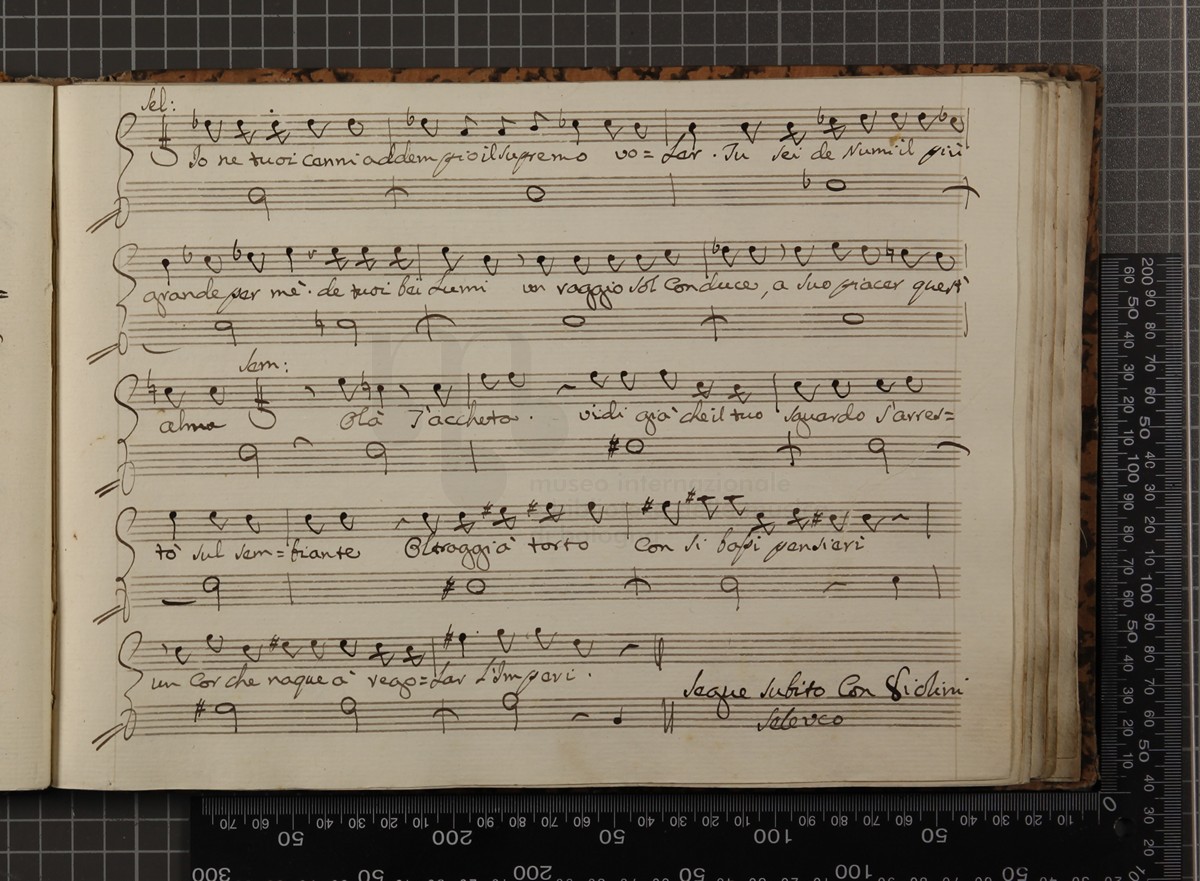 Sel:
Io ne tuoi cenni addempio il supremo vo=ler. Tu sei de Numi il più
grande per mè. de tuoi bei Lumi un raggio sol conduce, a suo piacer quest'
Sem:
alma Olà T'accheta. vidi già che il tuo sguardo s'arres=
tò sul sem=biante Oltraggi à torto con si bassi pensieri
un cor che naque à rego=lar l'Imperi.
Segue subito Con Violini
Seleuco
museo internazionale